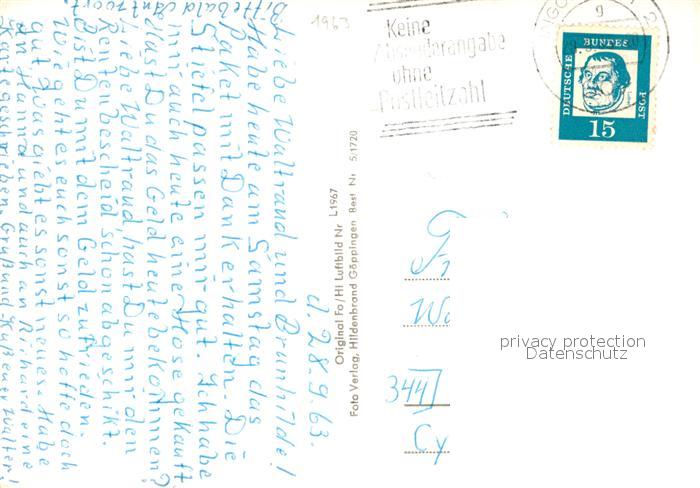 d. 28.9.63.
Liebe Waltraud und Brunhilde!
Habe heute am Samstag das
Paket mit Dank erhalten. Die
Stiefel passen mir gut. Ich habe
mir auch heute eine Hose gekauft
Hast Du das Geld heute bekommen?
Liebe Waltraud, hast Du mir den
Rentenbescheid schon abgeschikt.
Bist Du mit dem Geld zufrieden.
Wie geht es euch sonst so hoffe doch
gut. Was giebt es sonst neues. Habe
an Hanni und auch an Richard eine
Karte geschrieben. Gruß und Kuß euer Walter!
Bitte bald Antwort
1963
Original Fo/Hi Luftbild Nr L1967
Foto Verlag, Hildenbrand Göppingen Best Nr 5/1720
Keine
Absenderangabe
ohne
Postleitzahl
DEUTSCHE BUNDES POST
15
344
Cy
privacy protection
Datenschutz